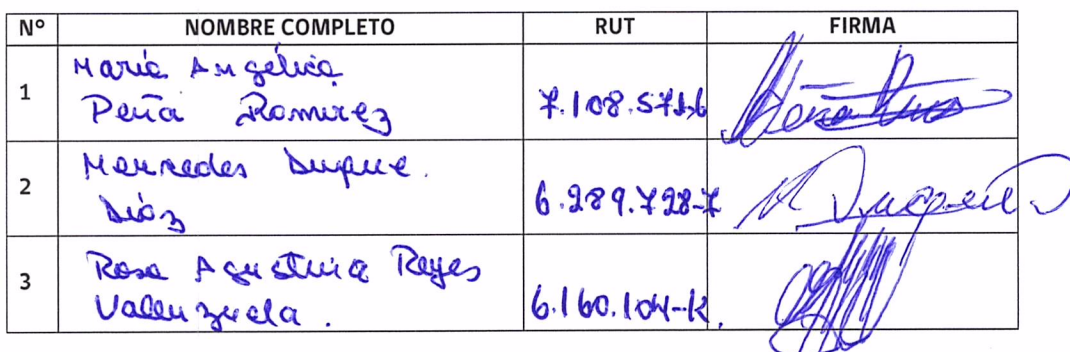 Nº NOMBRE COMPLETO RUT FIRMA
1 María Angélica
Peña Ramirez 7.108.571-6
2 Mercedes Duque.
Diáz 6.289.728-7 M Duque
3 Rosa Agustina Reyes
Valenzuela. 6.160.104-K.